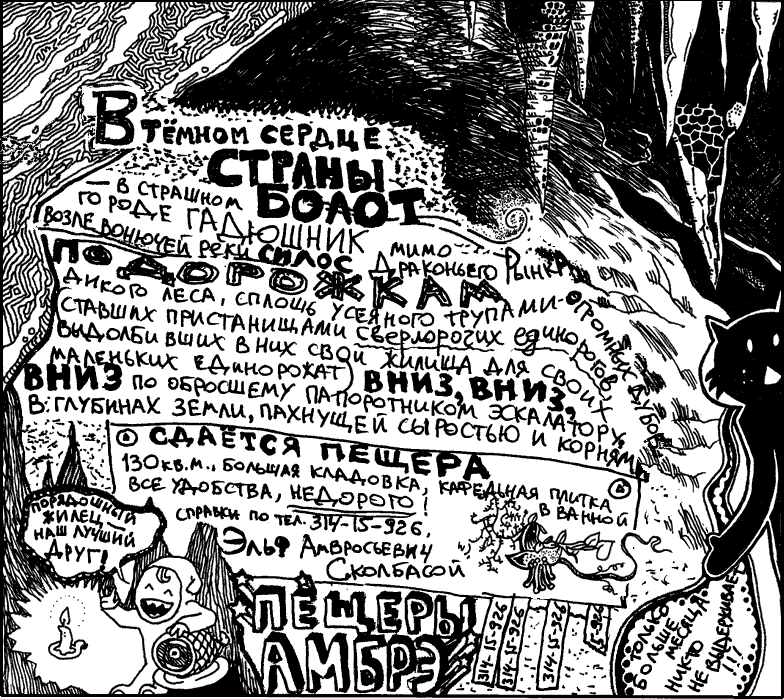 В тёмном сердце
СТРАНЫ
БОЛОТ
— в страшном
городе ГАДЮШНИК
возле вонючей реки СИЛОС
мимо
Драконьего Рынка,
ПО ДОРОЖКАМ
дикого леса, сплошь усеяного трупами огромных дубов,
ставших пристанищами сверлорогих единорогов,
выдолбивших в них свои жилища для своих
маленьких единорожат)
ВНИЗ, ВНИЗ,
ВНИЗ по обросшему папоротником эскалатору,
в глубинах земли, пахнущей сыростью и корнями
СДАЁТСЯ ПЕЩЕРА
130 кв.м., большая кладовка, кафельная плитка
в ванной
все удобства, недорого!
справки по тел. 314-15-926,
Эльф Амвросьевич
Сколбасой
ПОРЯДОШНЫЙ
ЖИЛЕЦ —
НАШ ЛУЧШИЙ
ДРУГ!
ПЕЩЕРЫ
АМБРЭ
314-15-926
314-15-926
314-15-926
15-926
ТОЛЬКО
БОЛЬШЕ
МЕСЯЦА
НИКТО
НЕ ВЫДЕРЖИВАЕТ
!!!